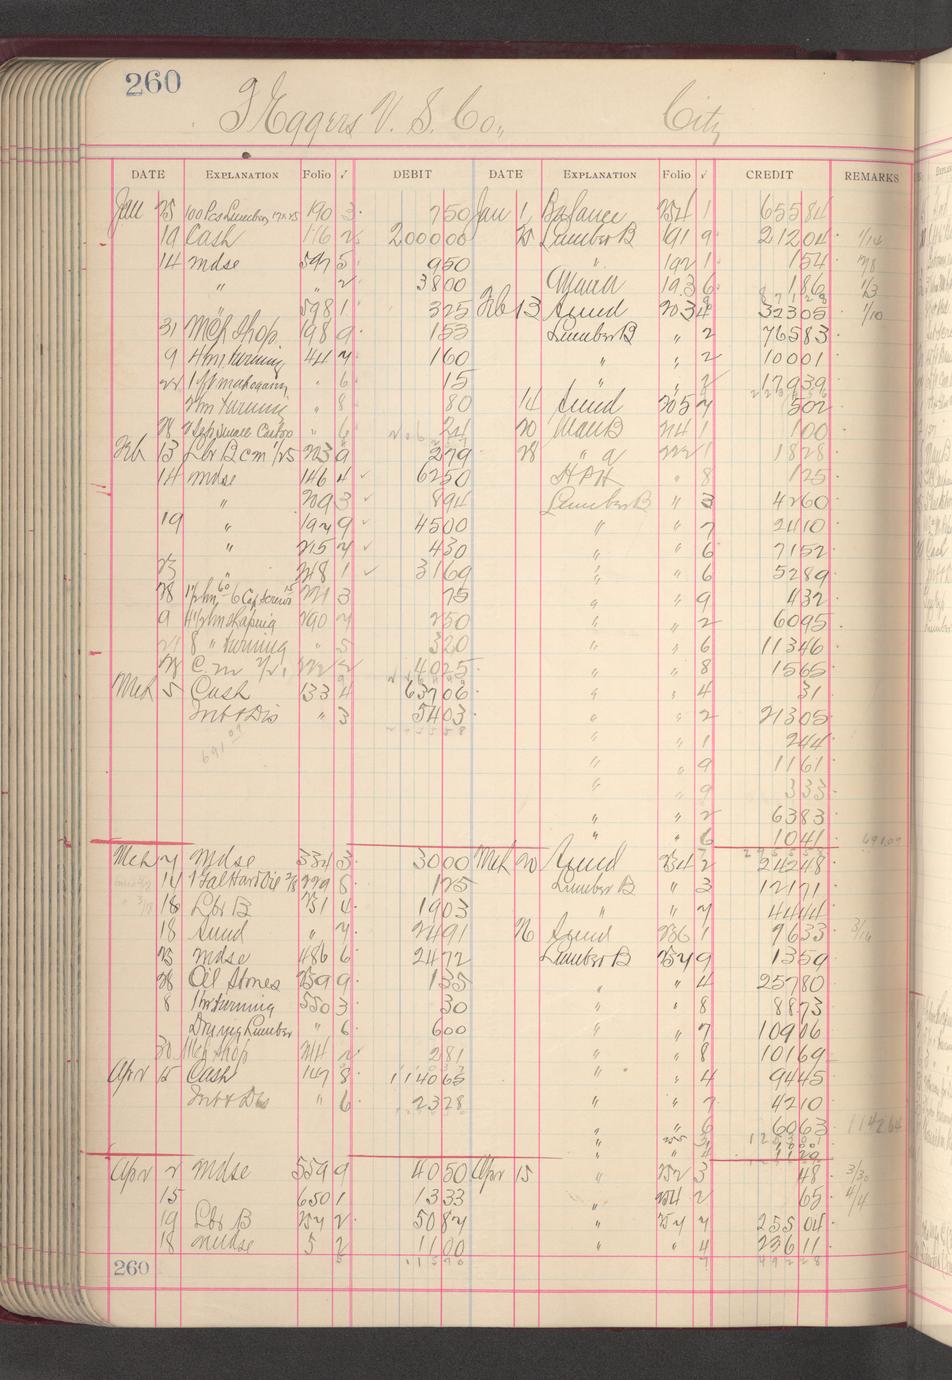 260
Eggers V. S. Co,, City
DATE EXPLANATION Folio √ DEBIT DATE EXPLANATION Folio √ CREDIT REMARKS
Jan 25 100 Pcs Lumber 190 3 750 Jan 1 Balance 254 1 65584
19 Cash 116 2 200000 25 Lumber B 191 9 21204
14 Mdse 597 5 950 " 192 1 154
" " 2 3800 193 6 186
" 598 1 325 Feb 13 Sund 203 4 32305 1/10
31 Mch Shop 198 9 153 Lumber B " 2 76583
9 4 hm turning 441 7 160 " " 2 10001
22 1 ft mahogany " 6 15 " " 2 17939
2 hm turning " 8 80 14 Sund 205 7 502
28 " 6 24 20 Man B 214 1 100
Feb 13 Lbr B cm 1/25 223 9 279 28 " a 222 1 1828
14 mdse 146 4 6250 HPH " 8 125
" 209 3 894 Lumber B " 3 4260
19 " 197 9 4500 " " 7 2410
" 215 7 430 " " 6 7152
23 " 248 1 3169 " " 6 5289
28 6 Cap Screws 221 3 75 " " 9 432
9 4 1/2 hm Shaping 290 7 250 " " 2 6095
21 8 " turning " 5 320 " " 6 11346
28 C. m 2/21 222 2 4025 " " 8 1565
Mch 5 Cash 133 4 63706 " " 4 31
Int & Dis " 3 5403 " " 2 21305
69109 " " 1 244
" " 9 1161
" " 9 333
" " 2 6383
" " 6 1041 69109
Mch 7 Mdse 334 3 3000 Mch 20 Sund 234 2 24248
14 1 Gal Hard Oil 2/8 229 8 125 Lumber B " 3 12171
18 Lbr B 231 4 1903 " " 7 4444
18 Sund " 7 2491 26 Sund 236 1 9633 3/16
23 mdse 486 6 2472 Lumber B 257 9 1359
28 Oil Stones 259 9 135 " " 4 25780
8 1 hr turning 550 3 30 " " 8 8873
Drying Lumber " 6 600 " " 7 10906
30 Mch Shop 214 2 281 " " 8 10169
Apr 15 Cash 147 8 114065 " " 4 9445
Int & Dis " 6 2328 " " 7 4210
" " 6 6063 114264
" 255 3
" " 4 1129
Apr 2 Mdse 559 9 4050 Apr 15 " 252 3 48 3/30
15 650 1 1333 " 254 2 65 4/4
19 Lbr B 257 2 5087 " 257 7 25504
18 mdse 5 2 1100 " " 4 23611
260